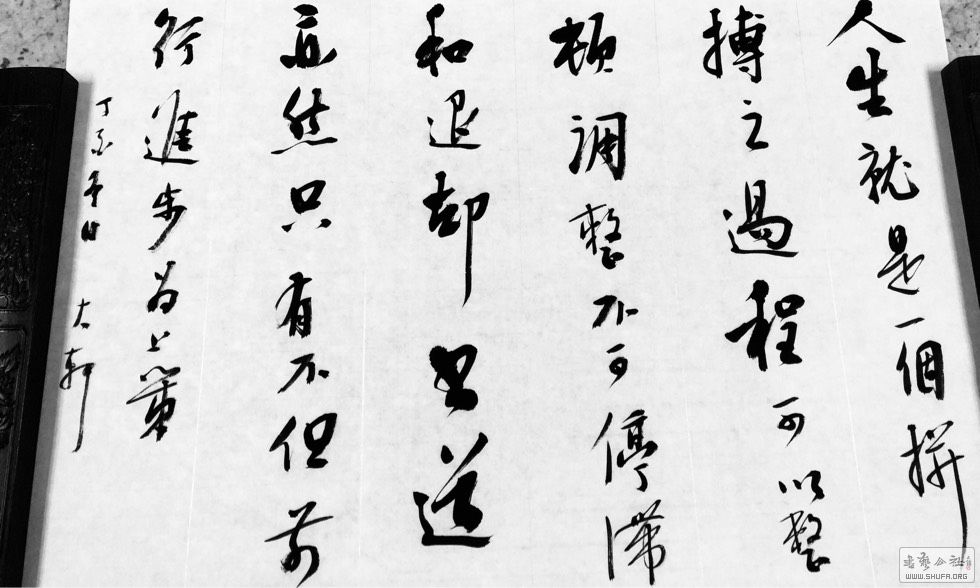 人生就是一個拼
搏之過程可以整
頓調整不可停滯
和退却書道
亦然只有不但前
行進步為上策
丁酉年 大軒
WWW.SHUFA.ORG